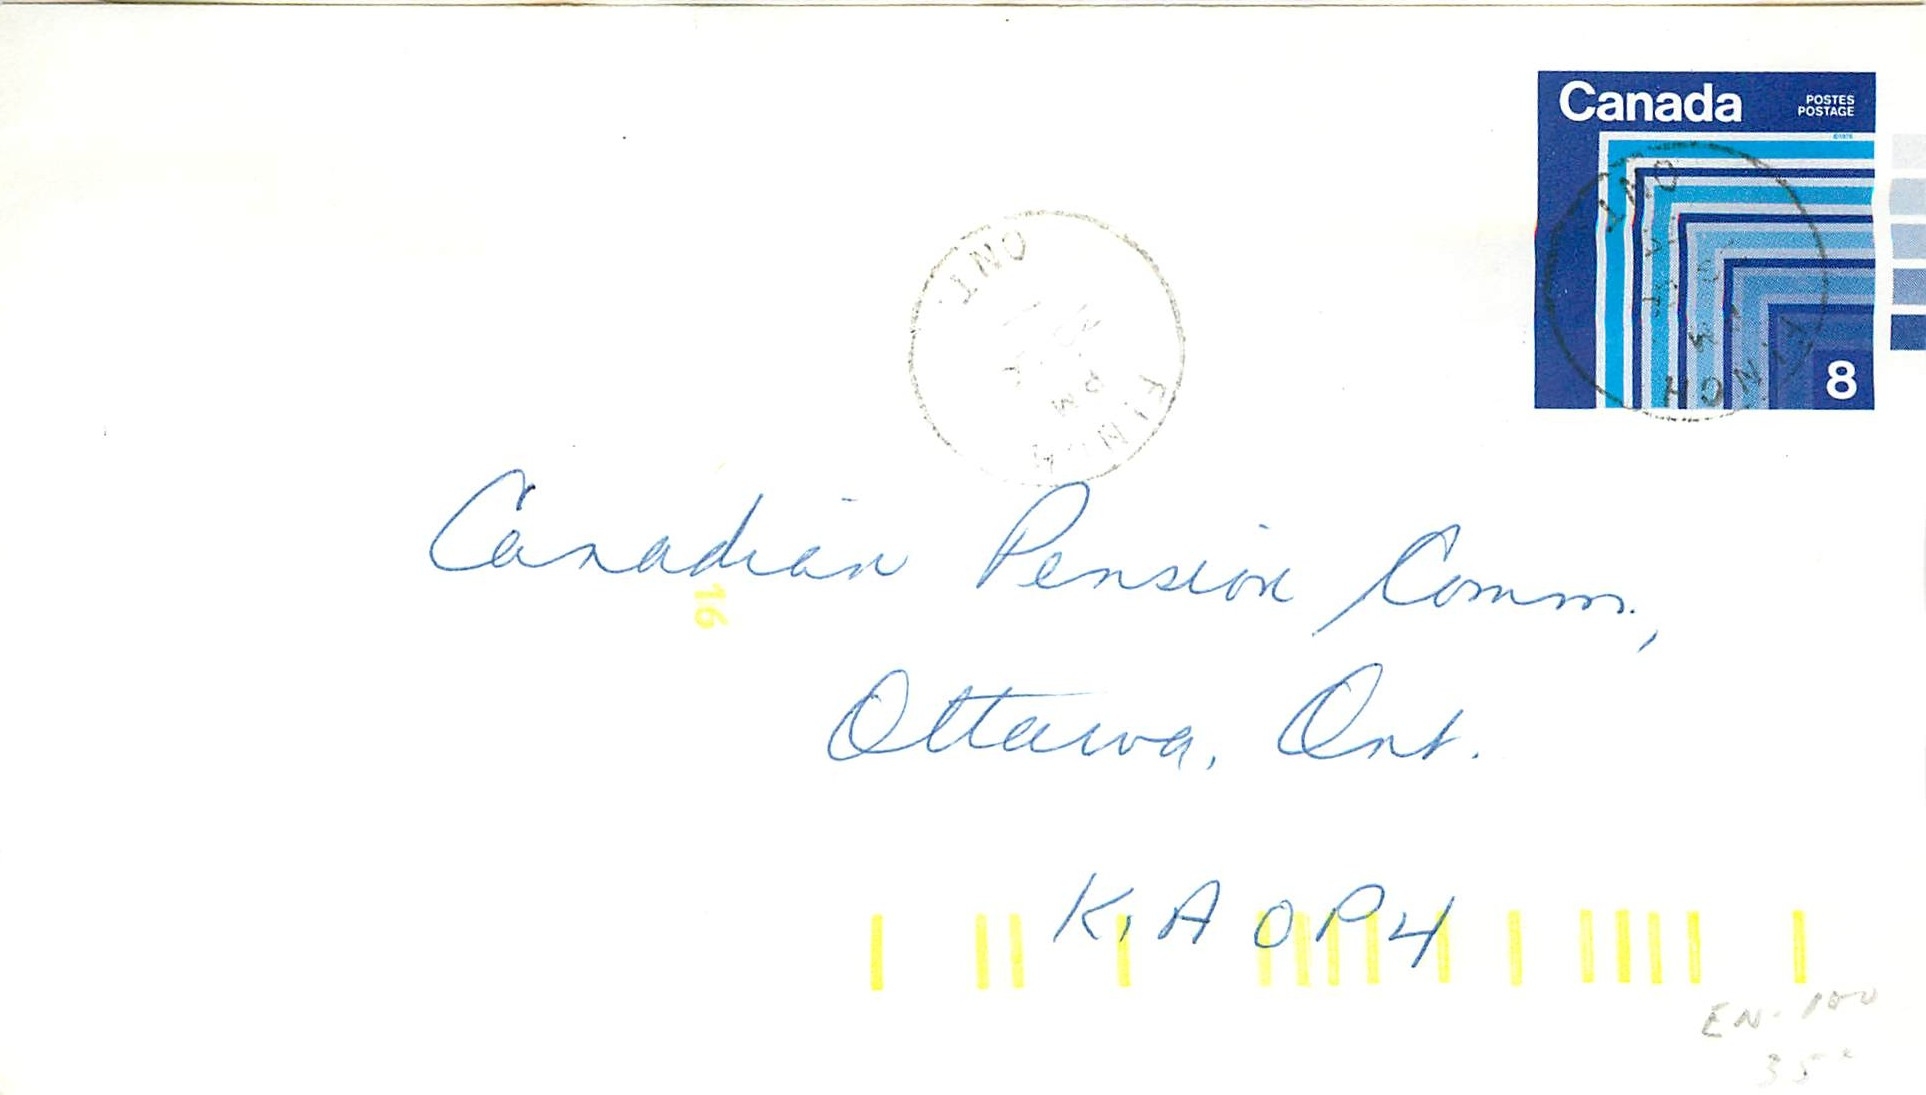 Canada
POSTES
POSTAGE
8
ONT
PM
FINCH
ONT
FINCH
Canadian Pension Comm.,
16
Ottawa, Ont.
K1A 0P4
EN-100
35¢